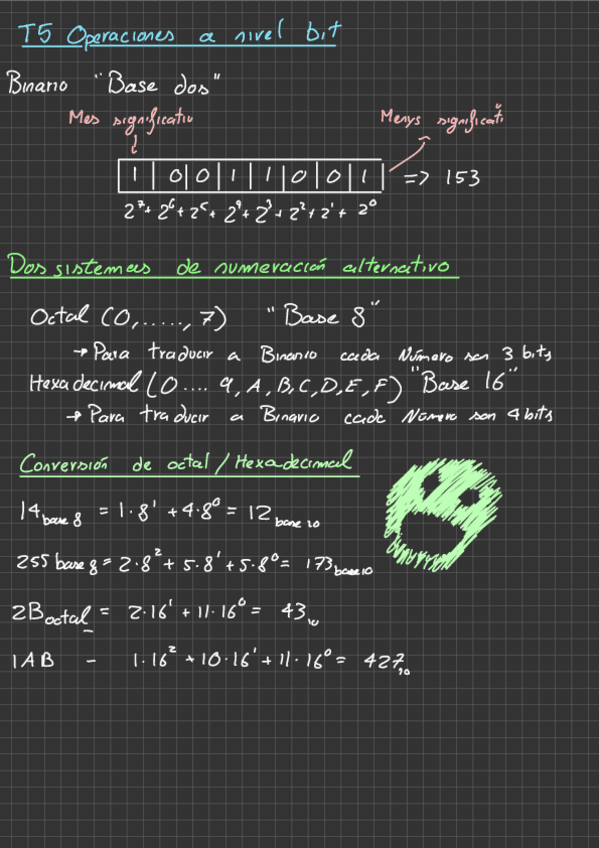 T5 Operaciones a nivel bit
Binario "Base dos"
Mes significatiu
Menys significati
1 | 0 | 0 | 1 | 1 | 0 | 0 | 1 => 153
2⁷+ 2⁶+ 2⁵+ 2⁴+ 2³+ 2²+ 2¹+ 2⁰
Dos sistemas de numeración alternativo
Octal (0,.....,7) "Base 8"
→ Para traducir a Binario cada Número son 3 bits
Hexadecimal (0.... 9, A, B, C, D, E, F) "Base 16"
→ Para traducir a Binario cade Número son 4 bits
Conversión de octal / Hexadecimal
14 base 8 = 1·8¹ + 4·8⁰ = 12 base 10
255 base 8 = 2·8² + 5·8¹ + 5·8⁰ = 173 base 10
2B octal = 2·16¹ + 11·16⁰ = 43 10
1AB - 1·16² + 10·16¹ + 11·16⁰ = 427 10